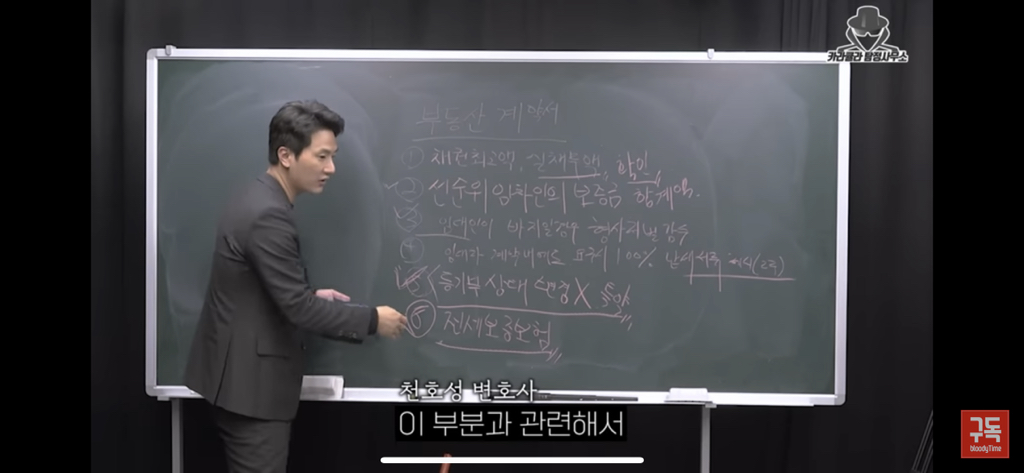 카라큘라 탐정사무소
부동산 계약서
① 채권최고액, 실채무액, 확인
② 선순위 임차인의 보증금 합계액.
③ 임대인이 바지일경우 형사처벌 감수
④ 100%
⑤ 등기부 상태 변경 X 특약
⑥ 전세보증보험
천호성 변호사
이 부분과 관련해서
구독
bloodyTime